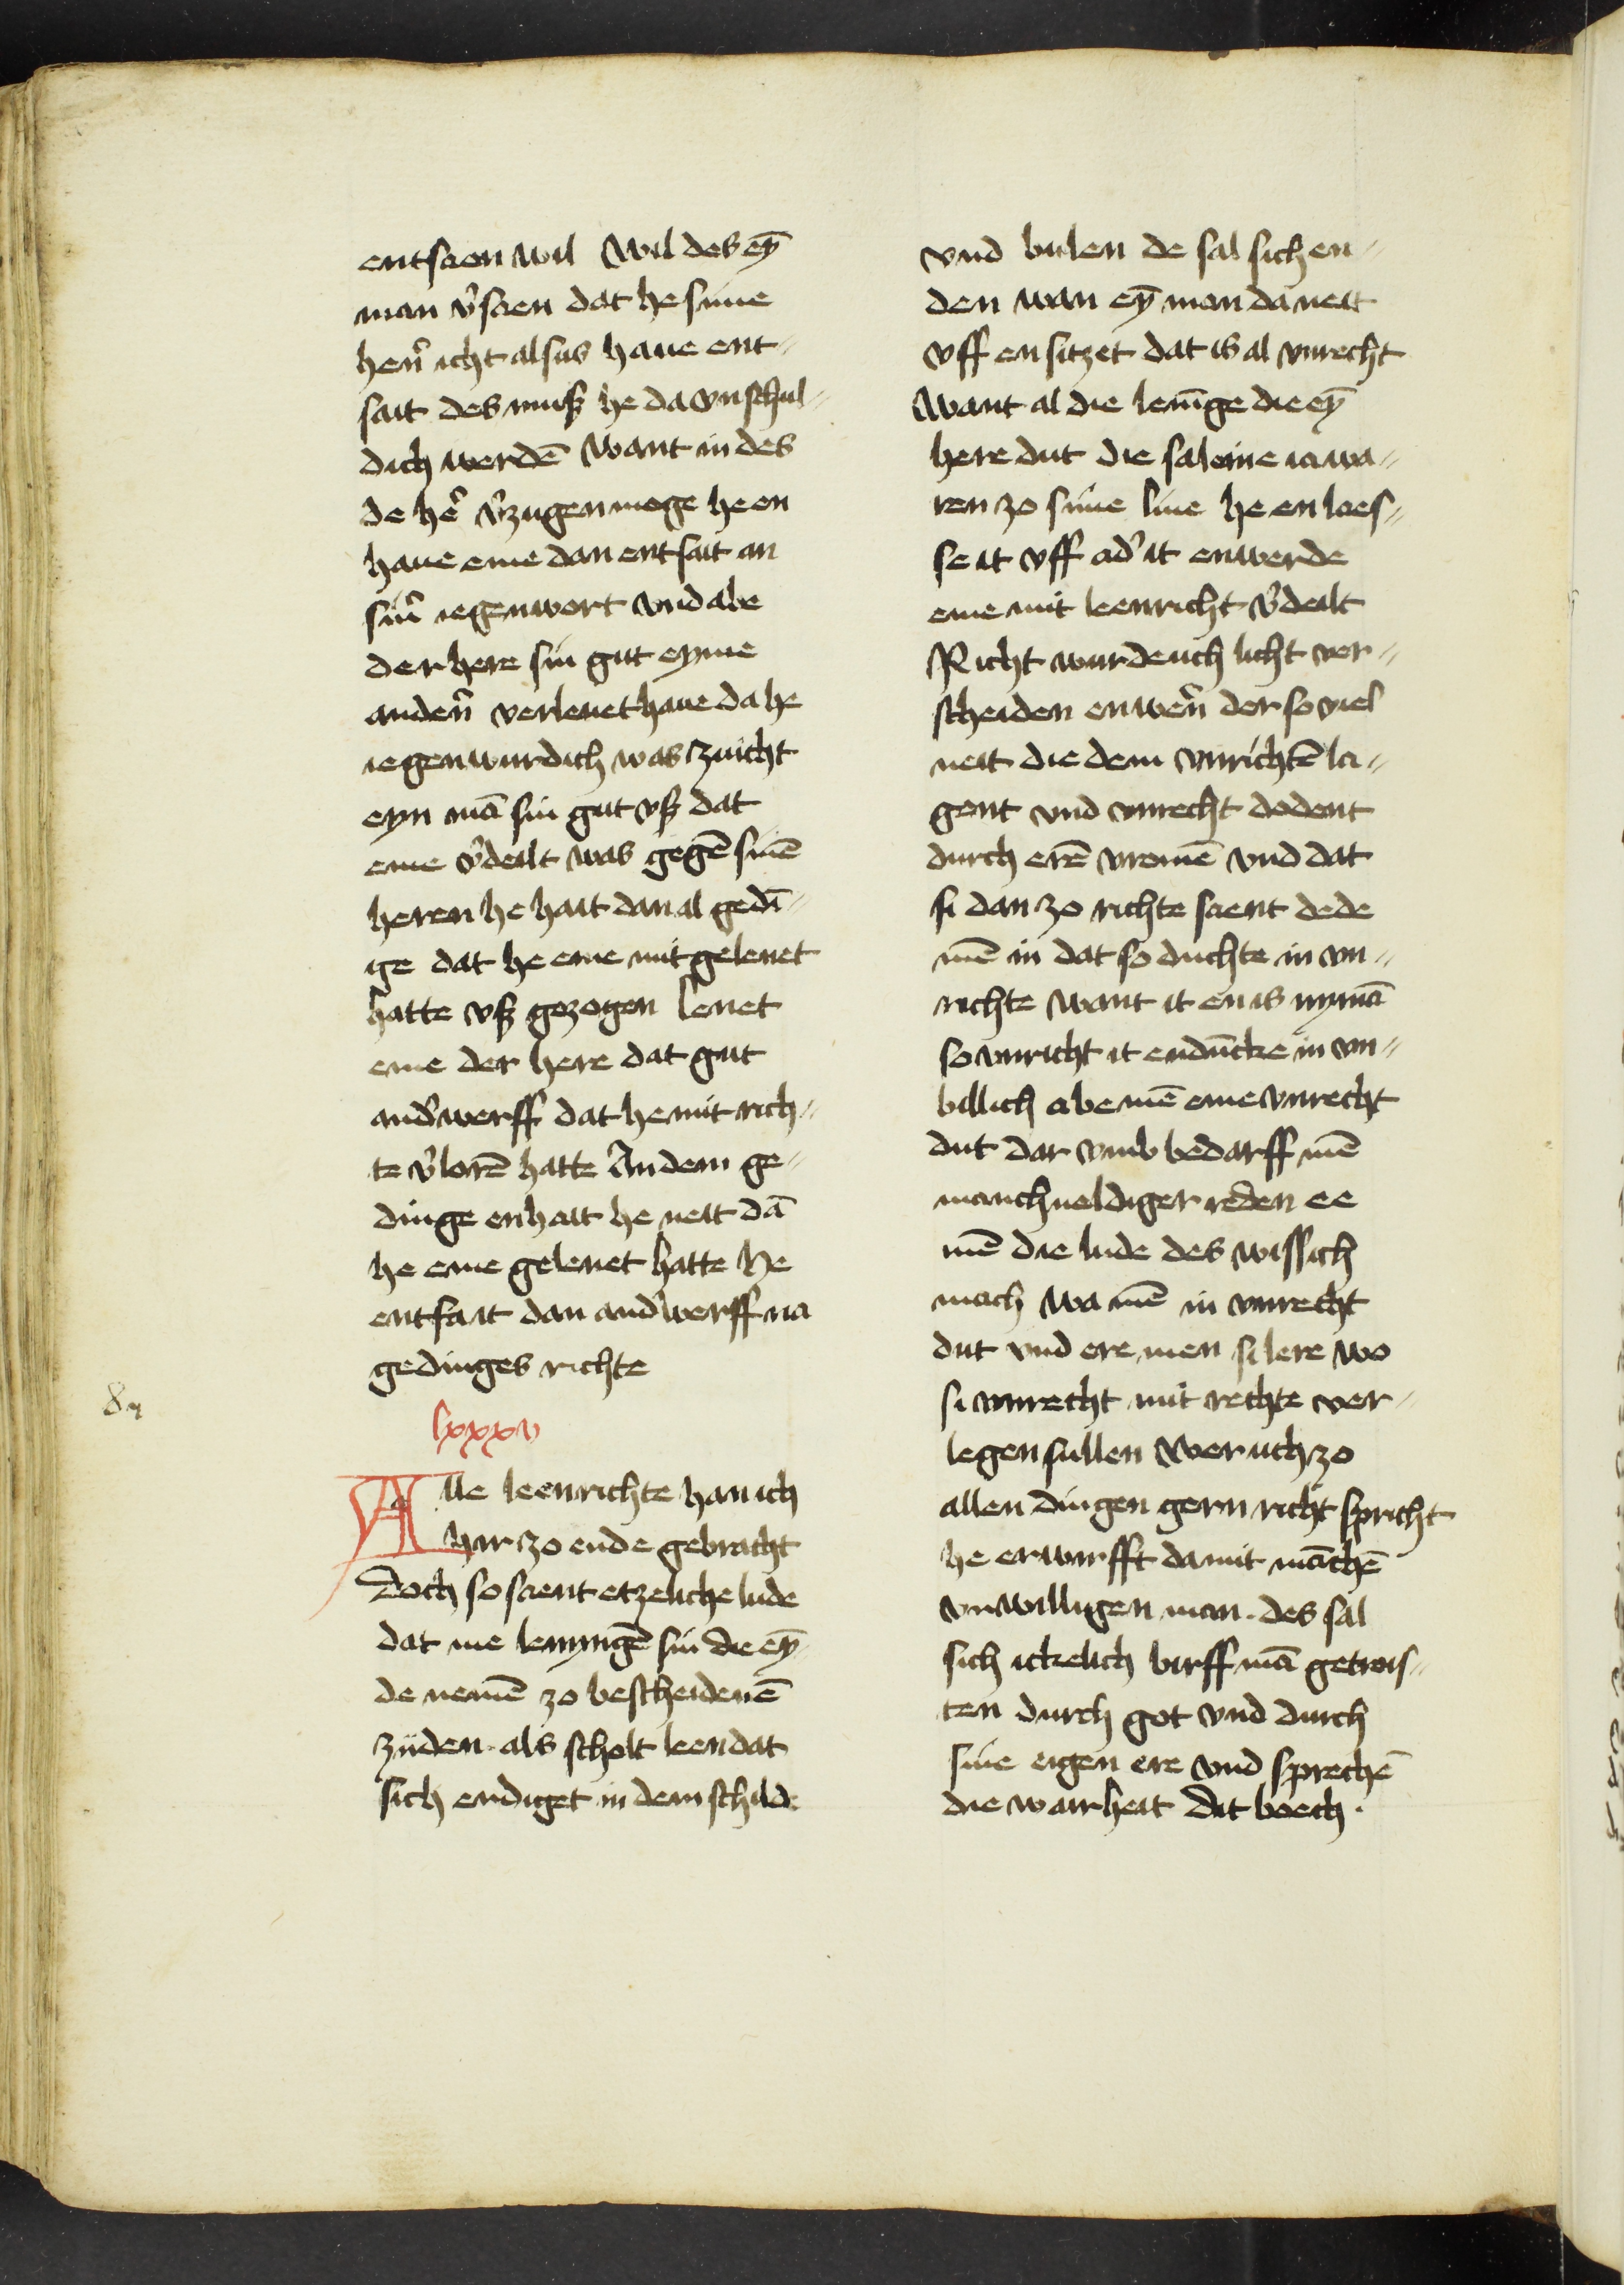 entsaen wil Wil des eȳ
man v̉saen dat he sime
hen̉ icht alsus haue ent-
sait des muß he da vnschul-
dich werdē Want in des
de hē̉ v̉zugen moge he en
haue eme dan entsait an
sin̉ iegenwort vnd abe
der here sin gut eyme
anden̉ verlenet haue da he
iegenwurdich was zuicht
eyn mā sin gut vß dat
eme v̉deilt was gegē sinē
heren he hait dan al gedī-
ge dat he eme mit gelenet
hatte vß gezogen lenet
eme der here dat gut
and̉werff dat he mit rich-
te v̉lorē hatte An dem ge-
dinge enhait he neit dā
he eme gelenet hatte he
entfait dan and̉werff na
gedinges richte
lxxxv
Alle leenrichte han ich
hir zo ende gebracht
Doch so saent etzeliche lude
dat me lenyngē sin die eȳ
de nemē zo bescheidenē
zijden. als scholt leen dat
sich endiget in dem schilde
vnd bulen de sal sich en-
den wan eȳ man da neit
vff en sitzet dat is al vnrecht
Want al die lenīge die eȳ
here dut die sal eme ia wa-
ren zo sime liue he en laes-
se it vff ad̉ it enwerde
eme mit leenricht v̉deilt
Richt wurde uch licht ver-
scheiden enwen̉ der so viel
neit die dem vnrichtē la-
gent vnd vnrecht dodent
durch erē vromē vnd dat
si dan zo richte saent dede
mē in dat so duchte in vn-
richte want it en is nymā
so vnricht it enduncke in vn-
billich abe mē eme vnrecht
dut dar vmb bedarff mē
manchueldiger reden ee
mē die lude des wissich
mach wa mē in vnrecht
dut vnd ere men si lere wo
si vnrecht mit rechte ver-
legen sullen Wer uch zo
allen dingen gern richt spricht
he erwirfft da mit māchē
vnwilligen man. des sal
sich ickelich birff mā getrois-
ten durch got vnd durch
sine eigen ere vnd sprechē
die wairheit Dit boech.